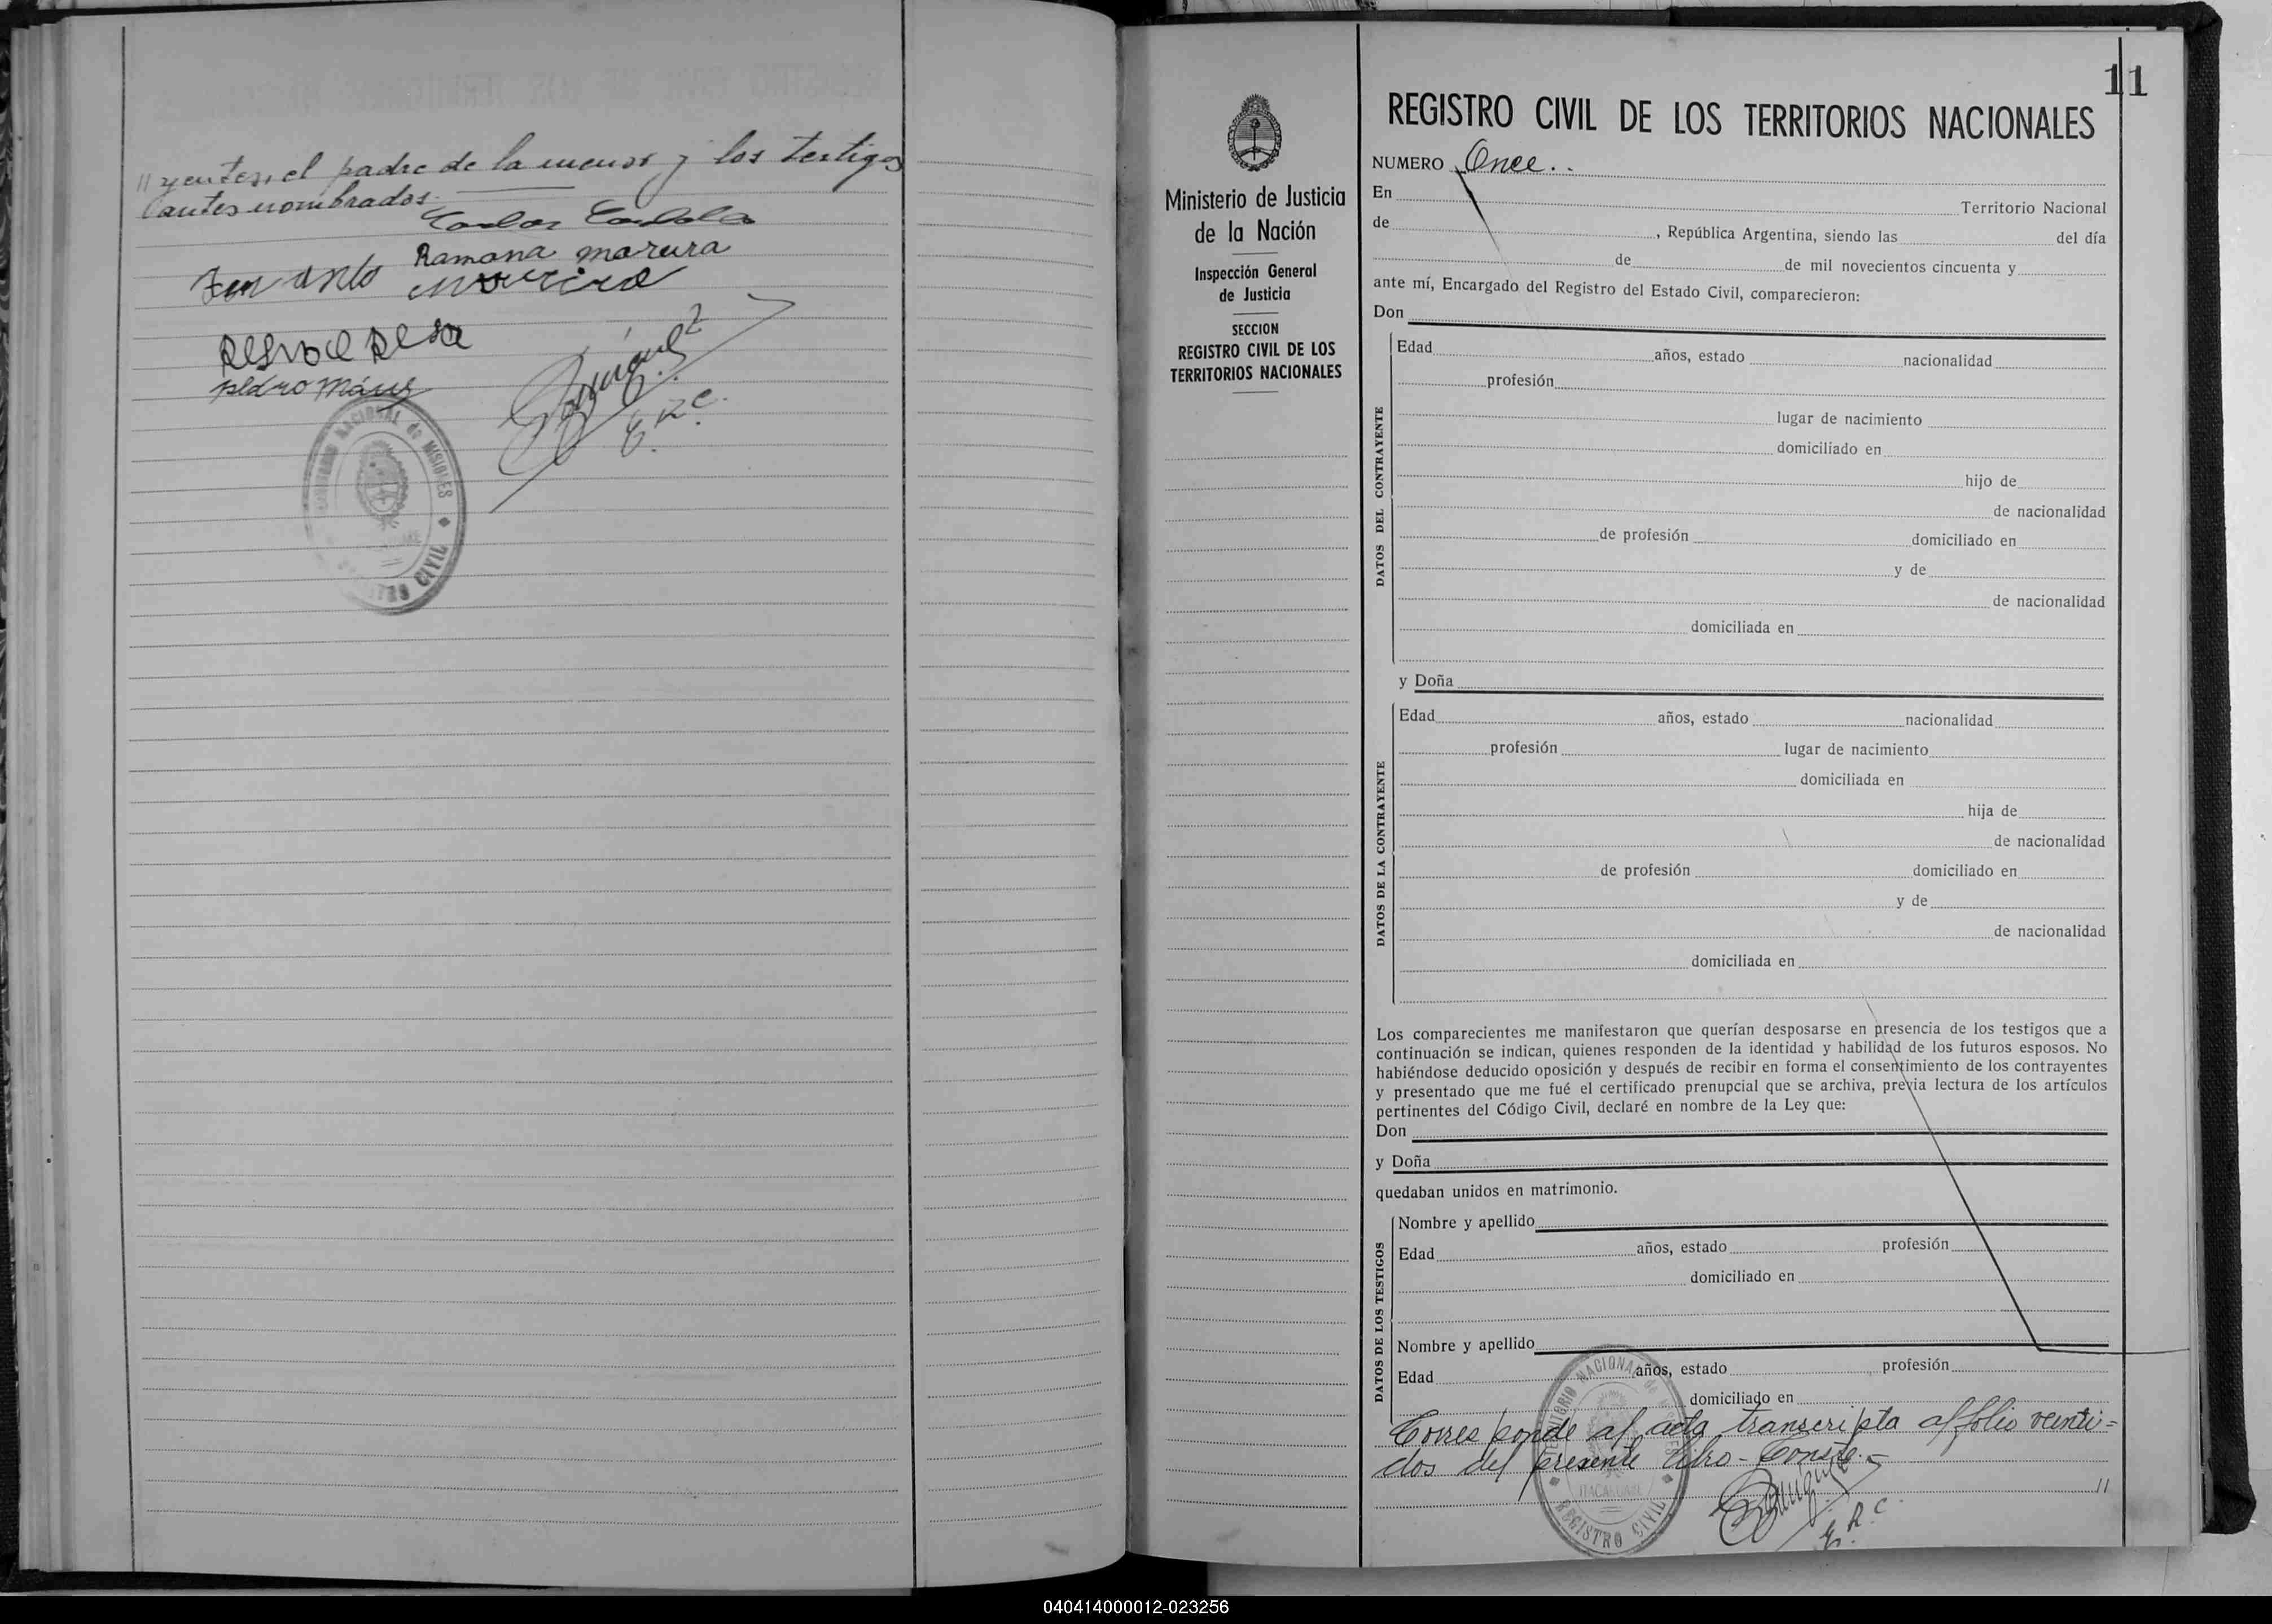 // yentes, el padre de la menor y los testigos
antes nombrados.
Ramona mareira
pedro
TERRITORIO NACIONAL de MISIONES
REGISTRO CIVIL
E. R. C.
11
Ministerio de Justicia
de la Nación
Inspección General
de Justicia
SECCION
REGISTRO CIVIL DE LOS
TERRITORIOS NACIONALES
REGISTRO CIVIL DE LOS TERRITORIOS NACIONALES
NUMERO Once..
En Territorio Nacional
de , República Argentina, siendo las del día
de de mil novecientos cincuenta y
ante mí, Encargado del Registro del Estado Civil, comparecieron:
Don
DATOS DEL CONTRAYENTE
Edad años, estado nacionalidad
profesión
lugar de nacimiento
domiciliado en
hijo de
de nacionalidad
de profesión domiciliado en
y de
de nacionalidad
domiciliada en
y Doña
DATOS DE LA CONTRAYENTE
Edad años, estado nacionalidad
profesión lugar de nacimiento
domiciliada en
hija de
de nacionalidad
de profesión domiciliado en
y de
de nacionalidad
domiciliada en
Los comparecientes me manifestaron que querían desposarse en presencia de los testigos que a
continuación se indican, quienes responden de la identidad y habilidad de los futuros esposos. No
habiéndose deducido oposición y después de recibir en forma el consentimiento de los contrayentes
y presentado que me fué el certificado prenupcial que se archiva, previa lectura de los artículos
pertinentes del Código Civil, declaré en nombre de la Ley que:
Don
y Doña
quedaban unidos en matrimonio.
DATOS DE LOS TESTIGOS
Nombre y apellido
Edad años, estado profesión
domiciliado en
Nombre y apellido
Edad años, estado profesión
domiciliado en
Corresponde al acta transcripta al folio veinti=
dos del presente libro - Conste.-
//
TERRITORIO NACIONAL de MISIONES
ITACARUARE
REGISTRO CIVIL
E. R. C.
040414000012-023256